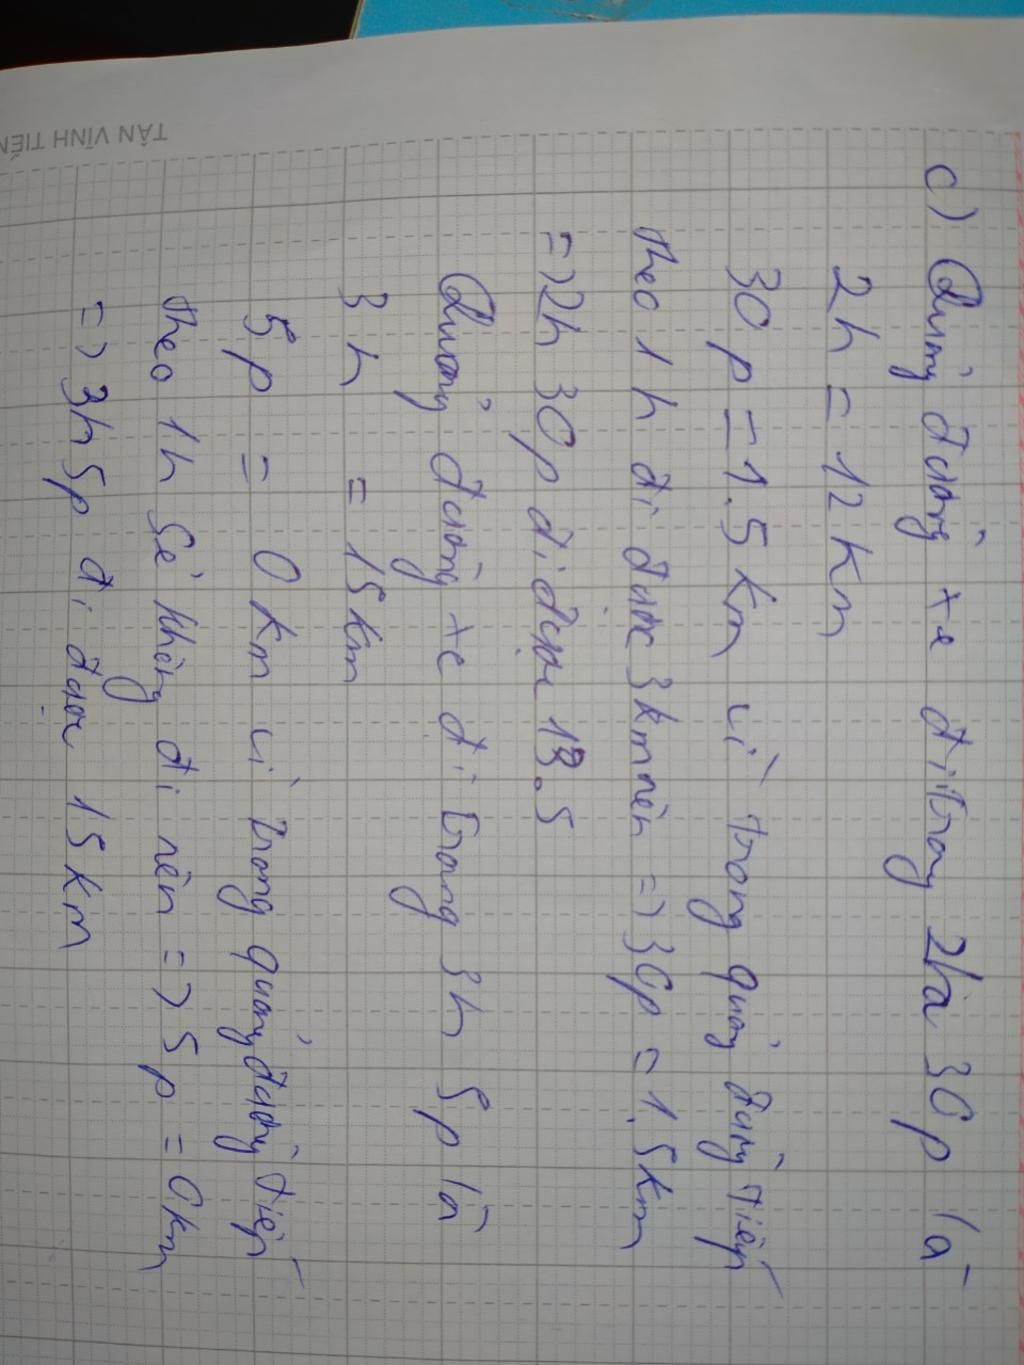 TÂN VĨNH TIẾN
c) Quảng đường xe đi trong 2h và 30p là
2h = 12 Km
30p = 1.5 km vì trong quảng đường tiếp
theo 1h đi được 3km nên => 30p = 1.5km
=> 2h 30p đi được 13.5
Quảng đường xe đi trong 3h 5p là
3h = 15km
5p = 0 km vì trong quảng đường tiếp
theo 1h sẻ không đi nên => 5p = 0km
=> 3h5p đi được 15km